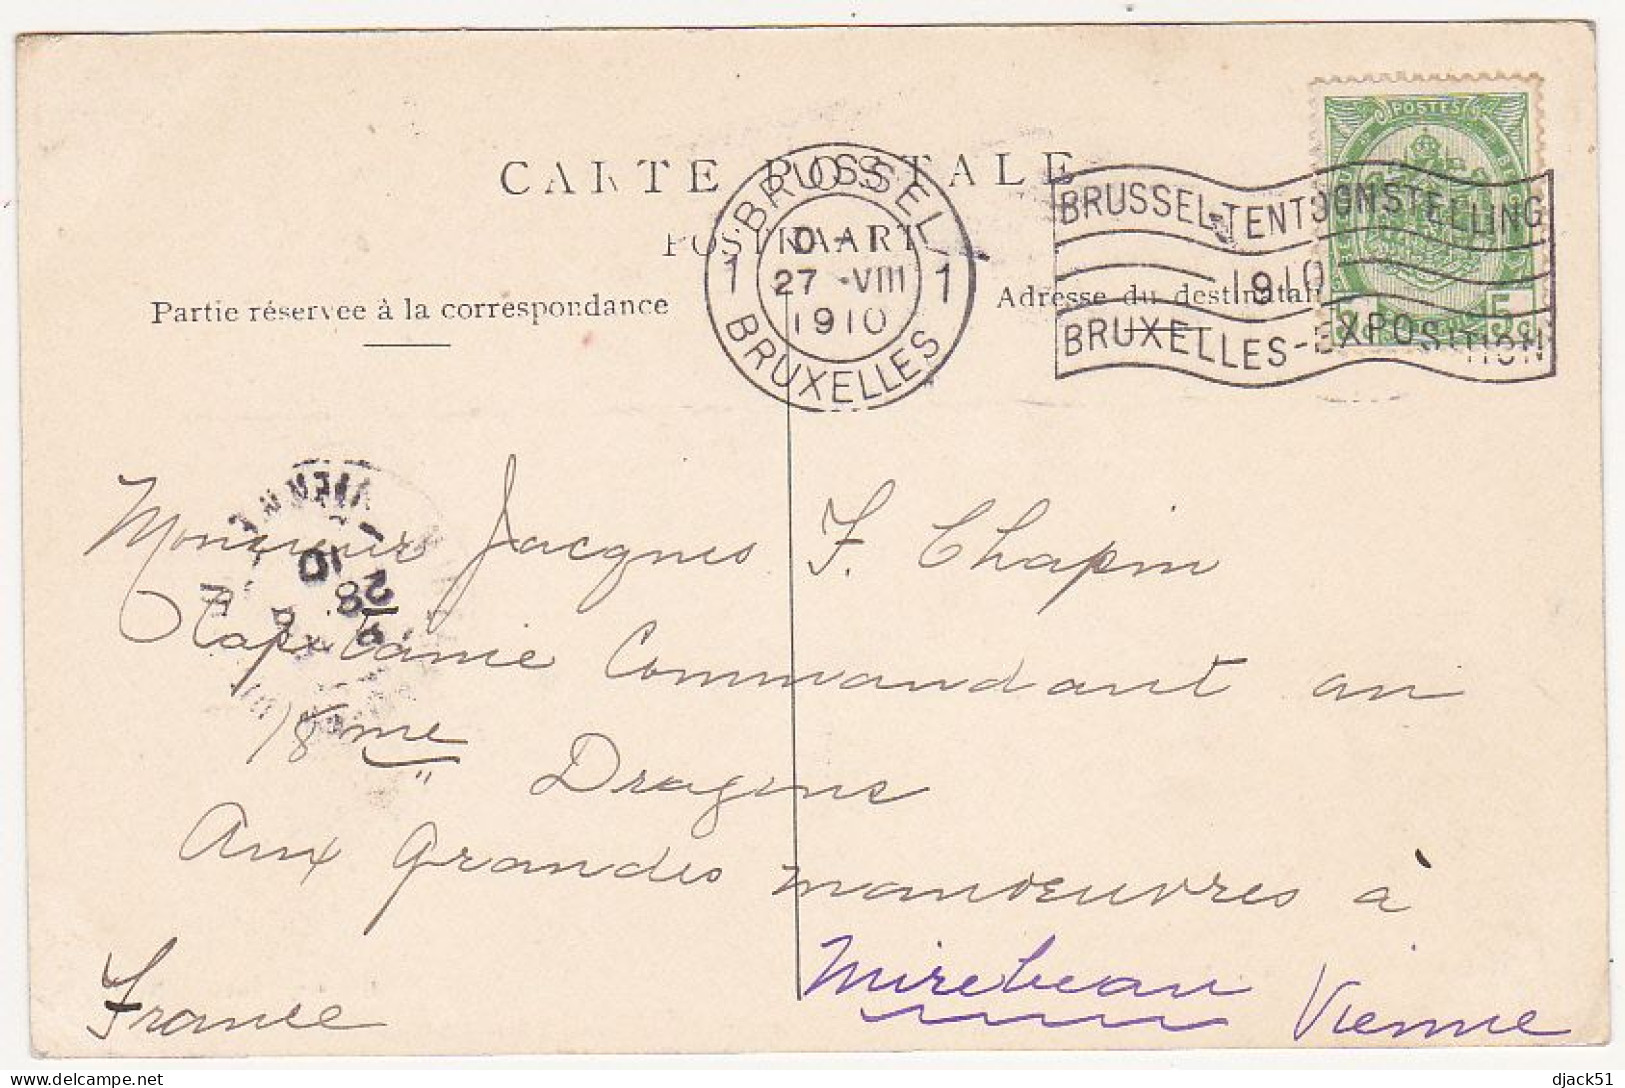 CARTE POSTALE
POSTKAART
Partie réservée à la correspondance
Adresse du destinatai
BRUSSEL
1 27 -VIII 1
1910
BRUXELLES
BRUSSEL-TENTOONSTELLING
1910
BRUXELLES-EXPOSITION
POSTES
5
VIENNE
10
28
8
Monsieur Jacques F. Chapin
Capitaine Commandant au
18eme Dragons
Aux grandes manoeuvres à
Mirebeau Vienne
France
delcampe.net
djack51